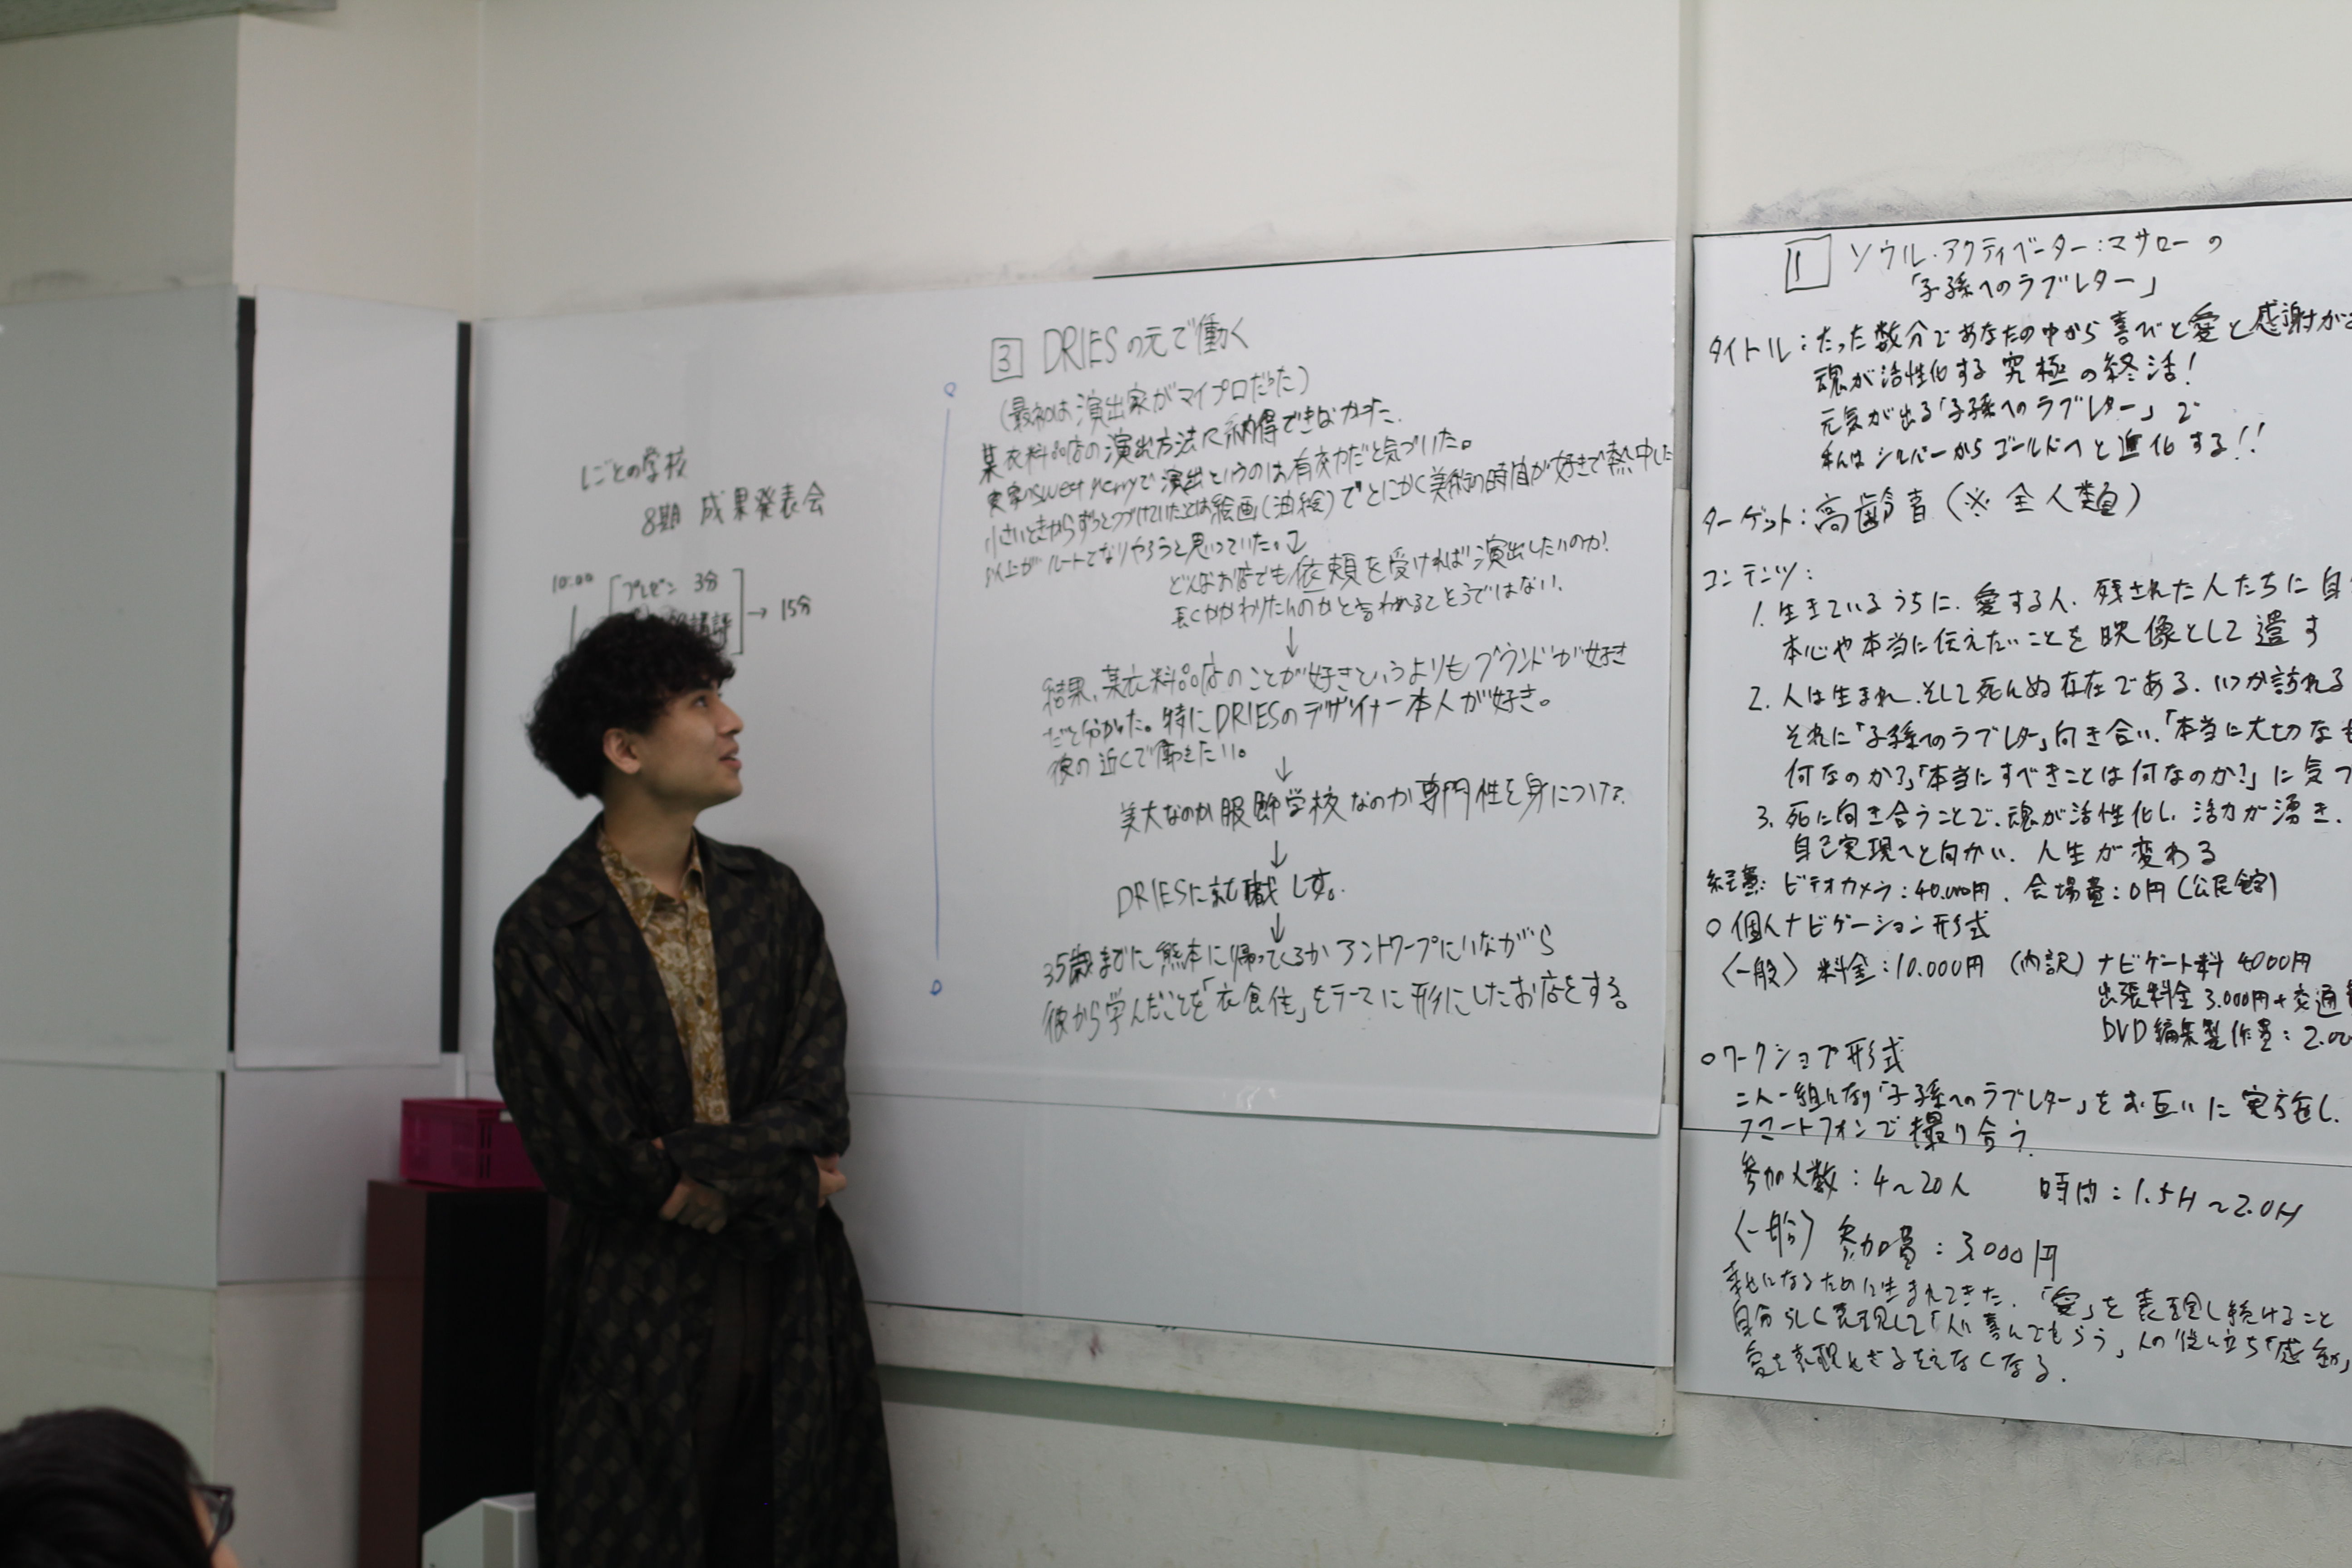 しごとの学校
8期 成果発表会
10:00
プレゼン 3分
講評
→ 15分
3 DRIESの元で働く
(最初は演出家がマイプロだった)
某衣料品店の演出方法に納得できなかった.
実家のsweet merryで演出というのは有効だと気づいた。
小さいときからずっとつづけていたことは絵画(油絵)でとにかく美術の時間が好きで熱中した
以上がルートでなりやろうと思っていた。
どんなお店でも依頼を受ければ演出したいのか!
長くかかわりたいのかと言われるとそうではない.
↓
結果、某衣料品店のことが好きというよりもブランドが好き
だと分かった。特にDRIESのデザイナー本人が好き。
彼の近くで働きたい。
↓
美大なのか服飾学校なのか専門性を身につけ
↓
DRIESに就職します。
↓
35歳までに熊本に帰ってくるかアントワープにいながら
彼から学んだことを「衣食住」をテーマに形にしたお店をする。
1 ソウル・アクティベーター:マサローの
「子孫へのラブレター」
タイトル:たった数分であなたの中から喜びと愛と感謝が
魂が活性化する究極の終活!
元気が出る「子孫へのラブレター」で
私はシルバーからゴールドへと進化する!!
ターゲット:高齢者(※全人類)
コンテンツ:
1. 生きているうちに、愛する人、残された人たちに自
本心や本当に伝えたいことを映像として遺す
2. 人は生まれ、そして死んぬ存在である、いつか訪れる
それに「子孫へのラブレター」向き合い、「本当に大切な
何なのか?」「本当にすべきことは何なのか?」に気づ
3. 死に向き合うことで、魂が活性化し、活力が湧き、
自己実現へと向かい、人生が変わる
経費:ビデオカメラ:40.000円、会場費:0円(公民館)
○個人ナビゲーション形式
〈一般〉料金:10.000円 (内訳) ナビゲート料 4000円
出張料金 3.000円+交通
DVD編集製作費:2.00
○ワークショプ形式
二人一組になり「子孫へのラブレター」をお互いに実施し、
スマートフォンで撮り合う.
参加人数:4〜20人 時間:1.5H〜2.0H
〈一般〉参加費:3.000円
幸せになるために生まれてきた.「愛」を表現し続けること
自分らしく表現して「人に喜んでもらう」人の役に立ち「感動」
愛を表現せざるをえなくなる.